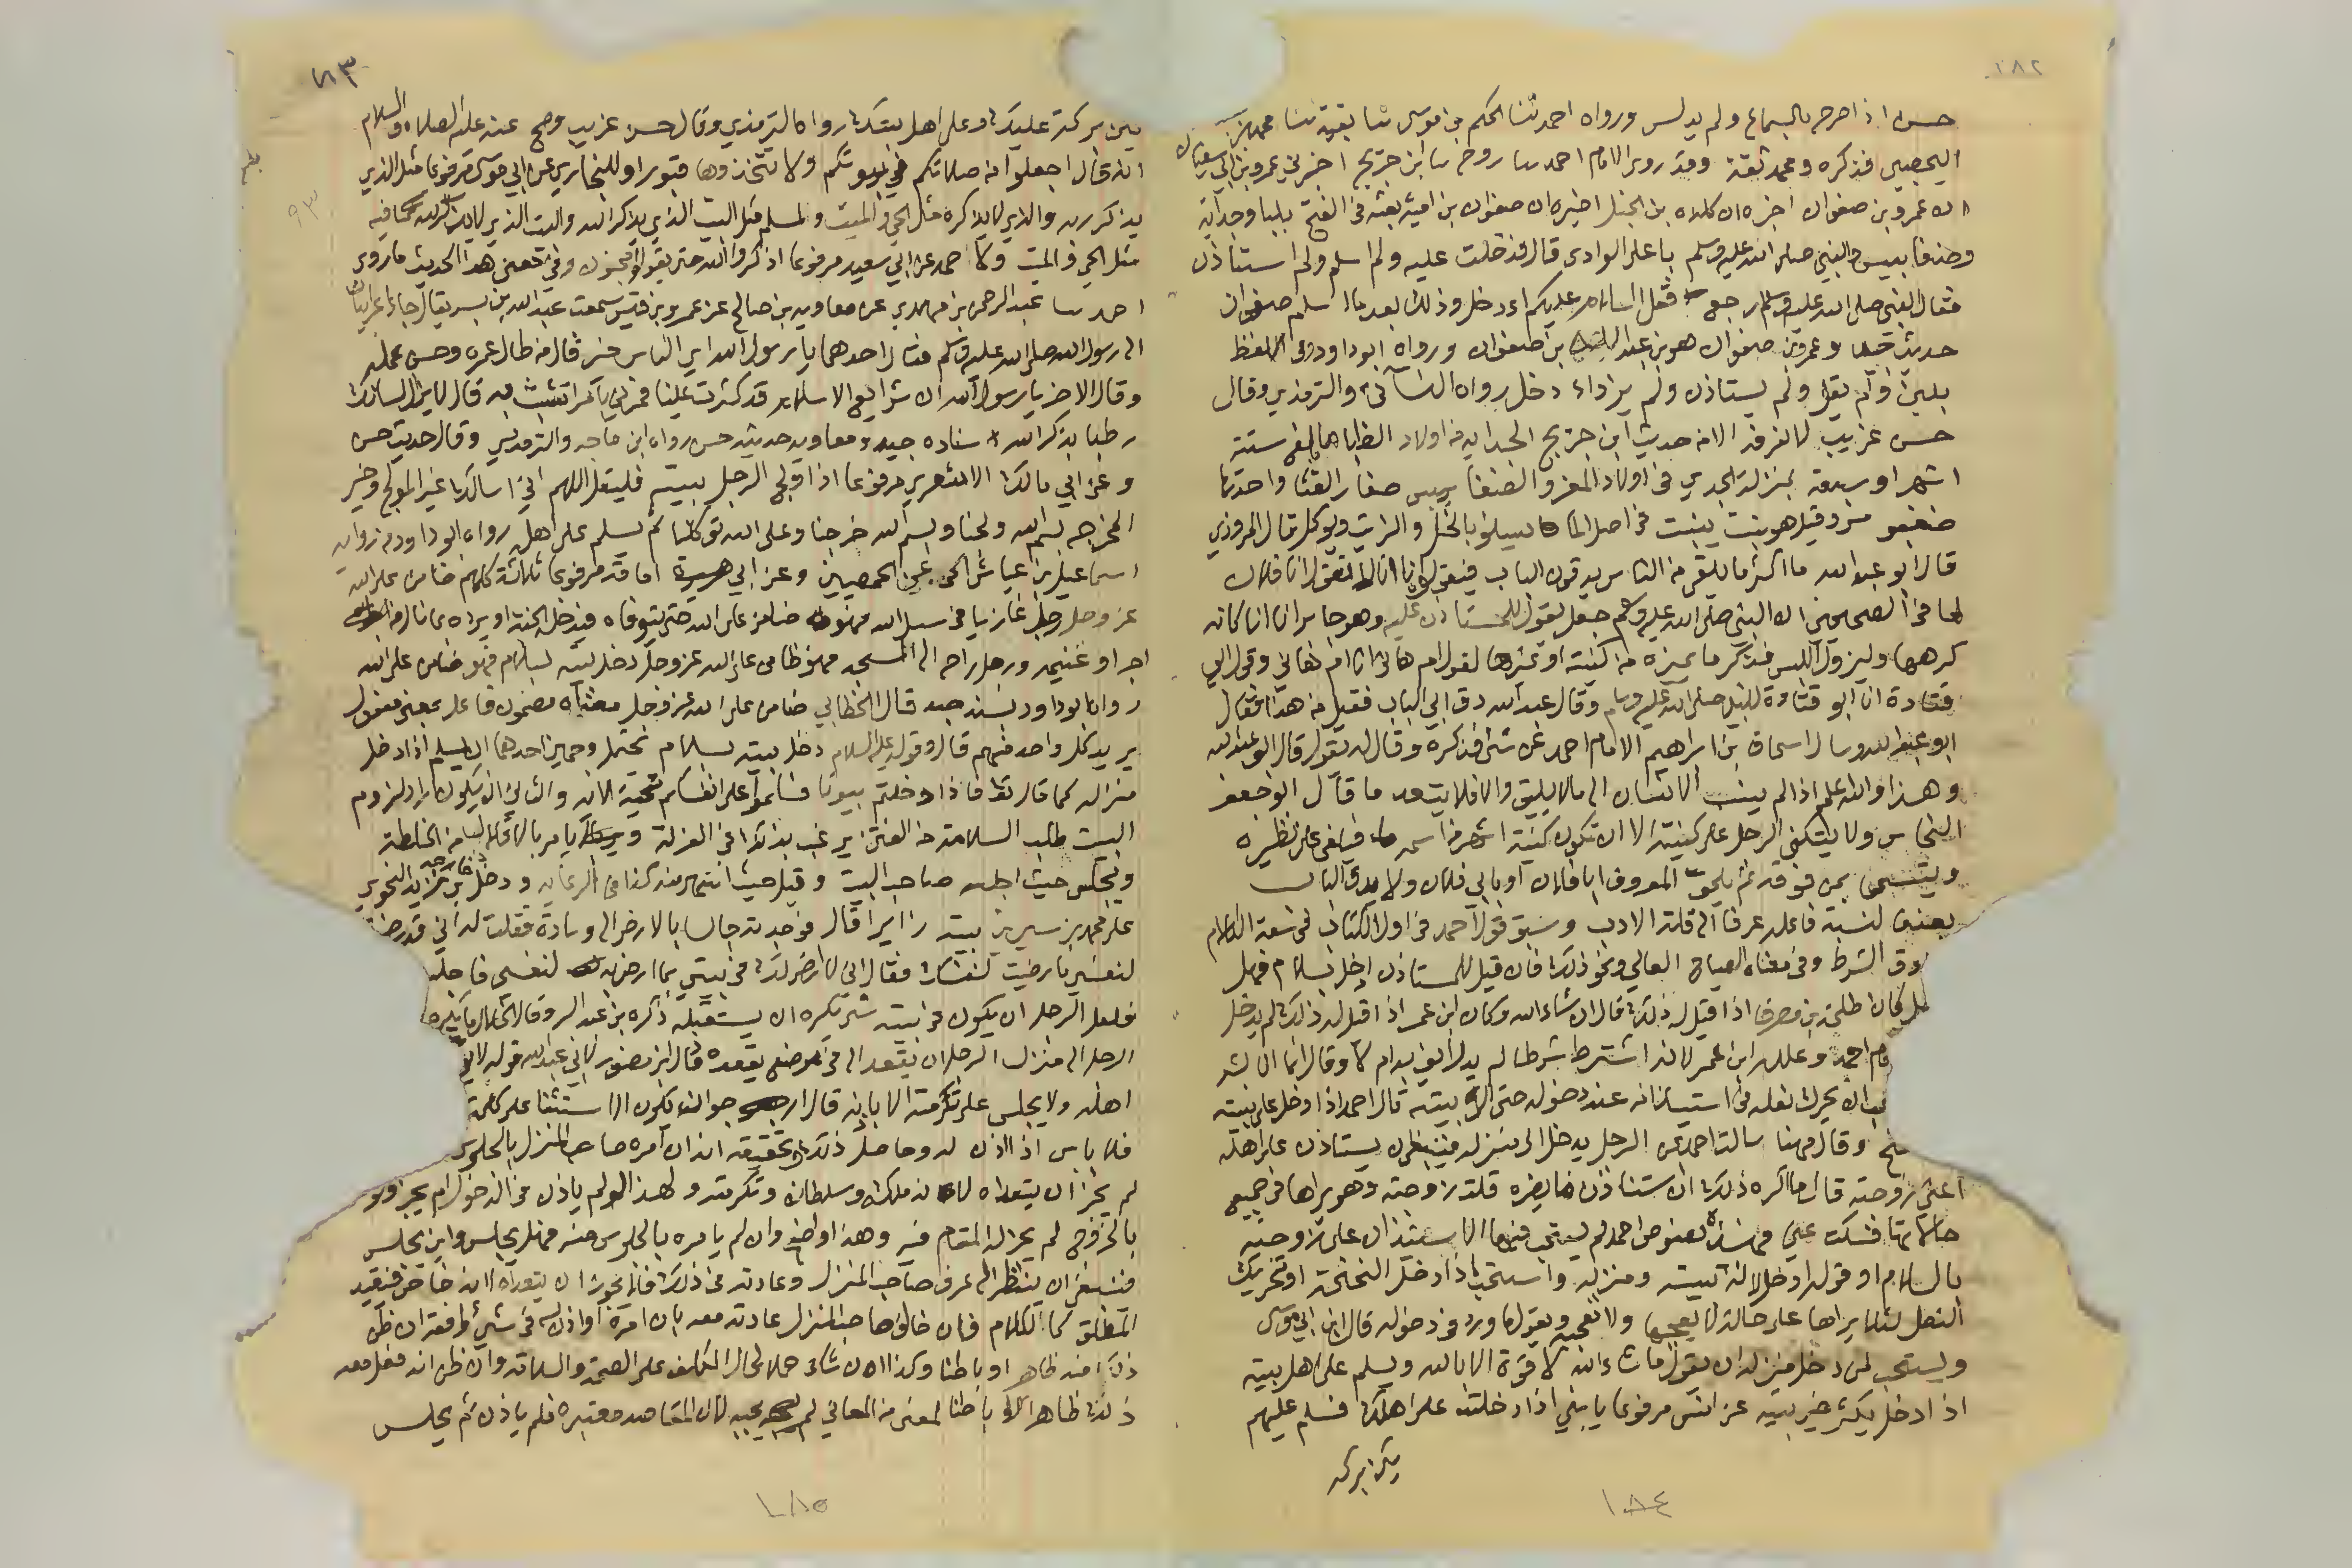 ١٨٢
حسن اذا صرح بالسماع ولم يدلس ورواه احمد ثنا الحكم بن موسى ثنا بقية ثنا محمد بن
اليحصبي فذكره ومحمد ثقة وقد روى الامام احمد ثنا روح ثنا ابن جريج اخبرني عمرو بن ابي سفيان
ان عمرو بن صفوان اخبره ان كلدة بن الحنبل اخبره ان صفوان بن امية بعثه في الفتح بلبا وجداية
وضغابيس والنبي صلى الله عليه وسلم باعلى الوادي قال فدخلت عليه ولم اسلم ولم استاذن
فقال النبي صلى الله عليه وسلم ارجع فقل السلام عليكم اادخل وذلك بعد ما اسلم صفوان
حديث جيد وعمرو بن صفوان هو بن عبد الله بن صفوان ورواه ابو داود وفي اللفظ
بلبن ولم يقل ولم يستاذن ولم يزد اء دخل رواه النسائي والترمذي وقال
حسن غريب لا نعرفه الا من حديث ابن جريج الجداية من اولاد الظبا ما بلغ ستة
اشهر او سبعة بمنزلة الجدي في اولاد المعز والضغابيس صغار القثا واحدها
ضغبوس وقيل هو نبت ينبت في اصل الثمام يسلق بالخل والزيت ويوكل قال المروذي
قال ابو عبد الله ما اكثر ما يلقى من الناس يدقون الباب فيقول انا انا الا تقول انا فلان
لما في الصحيحين ان النبي صلى الله عليه وسلم جعل يقول للمستاذن عليه وهو جابر انا انا كانه
كرهها وليزول اللبس فذكر ما يميزه من كنيته او غيرها لقول ام هاني انا ام هاني وقول ابي
قتادة انا ابو قتادة للنبي صلى الله عليه وسلم وقال عبد الله دق ابي الباب فقيل من هذا فقال
ابو عبد الله وسال اسحاق بن ابراهيم الامام احمد عن شي فذكره وقال له نقول قال ابو عبد الله
وهذا والله اعلم اذا لم ينسب الانسان الى ما لا يليق والا فلا يتعد ما قال ابو جعفر
النحاس ولا يتكنى الرجل على كنيته الا ان تكون كنيته اشهر من اسمه فيكنى على نظيره
ويتسمى لمن فوقه ثم يلحق المعروف ابا فلان او بابي فلان ولا يدق الباب
بعنف لنسبة فاعله عرفا الى قلة الادب وسبق قول احمد في اول الكتاب في سعة الكلام
دق الشرط وفي معناه الصياح العالي ونحو ذلك فان قيل للمستاذن ادخل بسلام فهل
يدخل كان طلحة بن مصرف اذا قيل له ذلك قال ان شاء الله وكان ابن عمر اذا قيل له ذلك لم يدخل
احمد وعلل ابن عمر لانه اشترط شرطا لم يدر ايفي به ام لا وقال انما انا بشر
ان يحرك نعله في استيذانه عند دخوله حتى الى بيته قال احمد اذا دخل على بيته
تنحنح وقال مهنا سالت احمد عن الرجل يدخل الى منزله ينبغي ان يستاذن على اهله
اعني زوجته قال ما اكره ذلك ان استاذن ما يضره قلت زوجته وهو يراها في جميع
حالاتها فسكت عني فهذه نصوص احمد لم يستحب فيها الاستئذان على زوجته
بالسلام او قوله ادخل لانه بيته ومنزله واستحب اذا دخل النحنحة او تحريك
النعل لئلا يراها على حالة لا يعجبها ولا تعجبه ويقول ما ورد في دخوله قال ابن ابي موسى
ويستحب لمن دخل منزله ان يقول ما شاء الله لا قوة الا بالله ويسلم على اهل بيته
اذا دخل يكثر خير بيته عن انس مرفوعا يا بني اذا دخلت على اهلك فسلم عليهم
يكن بركة
١٨٤
١٨٣
٩٣
يكن بركة عليك وعلى اهل بيتك رواه الترمذي وقال حسن غريب وصح عنه عليه الصلاة والسلام
انه قال اجعلوا من صلاتكم في بيوتكم ولا تتخذوها قبورا وللبخاري عن ابي موسى مرفوعا مثل الذي
يذكر ربه والذي لا يذكره مثل الحي والميت ولمسلم مثل البيت الذي يذكر الله والبيت الذي لا يذكر الله فيه
مثل الحي والميت ولاحمد عن ابي سعيد مرفوعا اذكروا الله حتى يقولوا مجنون وفي معنى هذا الحديث ما روى
احمد ثنا عبد الرحمن بن مهدي عن معاوية بن صالح عن عمرو بن قيس سمعت عبد الله بن بسر يقال جاء اعرابيان
الى رسول الله صلى الله عليه وسلم فقال احدهما يا رسول الله اي الناس خير قال من طال عمره وحسن عمله
وقال الاخر يا رسول الله ان شرايع الاسلام قد كثرت علينا فمرني بامر اتشبث به قال لا يزال لسانك
رطبا بذكر الله اسناده جيد ومعاوية حديثه حسن رواه ابن ماجه والترمذي وقال حديث حسن
وعن ابي مالك الاشعري مرفوعا اذا ولج الرجل بيته فليقل اللهم اني اسالك خير المولج وخير
المخرج بسم الله ولجنا وبسم الله خرجنا وعلى الله توكلنا ثم يسلم على اهله رواه ابو داود من رواية
اسماعيل بن عياش عن الحمصيين وعن ابي امامة مرفوعا ثلاثة كلهم ضامن على الله
عز وجل رجل غازيا في سبيل الله فهو ضامن على الله حتى يتوفاه فيدخله الجنة او يرده بما نال من
اجر او غنيمة ورجل راح الى المسجد فهو ضامن على الله عز وجل ورجل دخل بيته بسلام فهو ضامن على الله
رواه ابو داود بسند جيد قال الخطابي ضامن على الله عز وجل معناه مضمون فاعل بمعنى مفعول
يريد كل واحد منهم قال وقوله عليه السلام دخل بيته بسلام تحتمل وجهين احدهما ان يسلم اذا دخل
منزله كما قال تعالى فاذا دخلتم بيوتا فسلموا على انفسكم تحية الاية والثاني ان يكون اراد لزوم
البيت طلب السلامة من الفتن يرغب بذلك في العزلة ويامر بالاقلال من الخلطة
ويجلس حيث اجلسه صاحب البيت وقيل حيث انتهى منه كذا في الرعاية ودخل خارجة بن زيد النحوي
على محمد بن سيرين بيته زايرا قال فوجدته جالسا بالارض الى وسادة فقلت له اني قد رضيت
لنفسي ما رضيت لنفسك فقال اني لا ارضى لك في بيتي بما ارضى به لنفسي فاجلس
فلعل الرجل ان يكون في بيته شي تكره ان يستقبله ذكره بن عبد البر وقال
الرجل الى منزل الرجل ان يقعد الا في موضع يقعده قال ابن منصور لابي عبد الله قوله لا يؤم
اهله ولا يجلس على تكرمته الا باذنه قال ارجو ان يكون الاستثنا على كله
فلا باس اذا اذن له وحاصل ذلك وتحقيقه انه ان امره صاحب المنزل بالجلوس
لم يجز ان يتعداه لانه ملكه وسلطانه وتكرمته ولهذا لو لم ياذن في الدخول لم يجز ولو
بالخروج لم يجز له المقام فيه وهذا واضح وان لم يامره بالجلوس فيه فهل يجلس واين يجلس
فينبغي ان ينظر الى عرف صاحب المنزل وعادته في ذلك فلا يجوز ان يتعداه لانه خاص فيقيد
المطلق كما الكلام فان خالف صاحب المنزل عادته معه بان امره او اذن له في شي وافقه ان ظن
ذلك منه ظاهرا وباطنا وكذا ان شك حملا لحال المكلف على الصحة والسلامة وان ظن انه فعل معه
ذلك ظاهرا لا باطنا لمعنى من المعاني لم يجبه لان المقاصد معتبرة فلم ياذن ثم يجلس
١٨٥